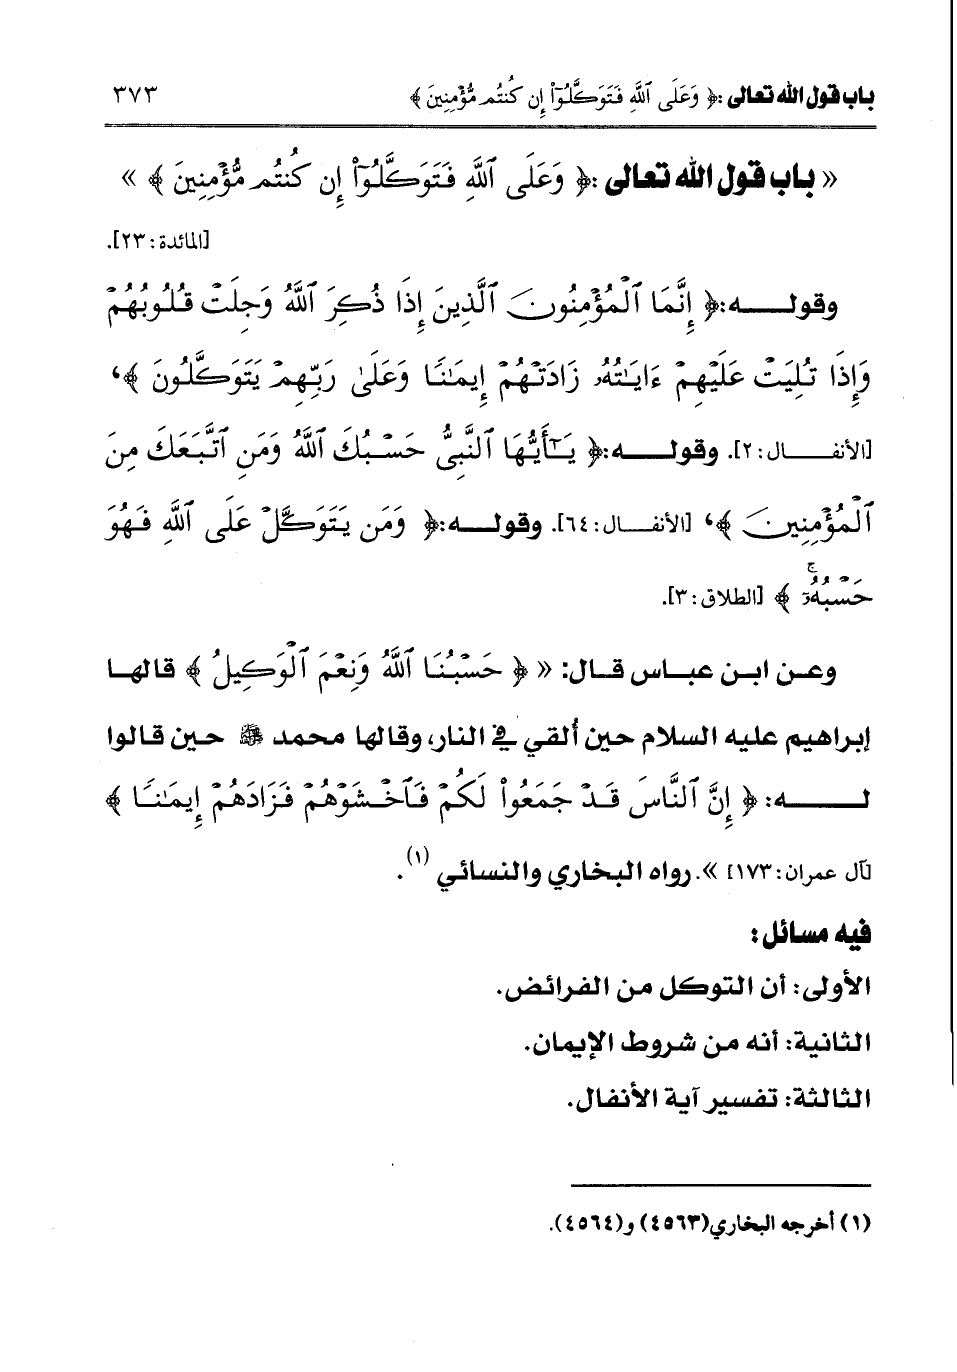 باب قول الله تعالى :﴿ وَعَلَى ٱللَّهِ فَتَوَكَّلُوٓا۟ إِن كُنتُم مُّؤْمِنِينَ ﴾ ٣٧٣
« باب قول الله تعالى :﴿ وَعَلَى ٱللَّهِ فَتَوَكَّلُوٓا۟ إِن كُنتُم مُّؤْمِنِينَ ﴾ »
[المائدة: ٢٣].
وقولـــه:﴿ إِنَّمَا ٱلْمُؤْمِنُونَ ٱلَّذِينَ إِذَا ذُكِرَ ٱللَّهُ وَجِلَتْ قُلُوبُهُمْ
وَإِذَا تُلِيَتْ عَلَيْهِمْ ءَايَٰتُهُۥ زَادَتْهُمْ إِيمَٰنًا وَعَلَىٰ رَبِّهِمْ يَتَوَكَّلُونَ ﴾،
[الأنفـــال: ٢]. وقولـــه:﴿ يَٰٓأَيُّهَا ٱلنَّبِىُّ حَسْبُكَ ٱللَّهُ وَمَنِ ٱتَّبَعَكَ مِنَ
ٱلْمُؤْمِنِينَ ﴾، [الأنفـــال: ٦٤]. وقولـــه:﴿ وَمَن يَتَوَكَّلْ عَلَى ٱللَّهِ فَهُوَ
حَسْبُهُۥٓ ۚ ﴾ [الطلاق: ٣].
وعـن ابـن عبـاس قـال: « ﴿ حَسْبُنَا ٱللَّهُ وَنِعْمَ ٱلْوَكِيلُ ﴾ قالهـا
إبراهيم عليه السلام حين أُلقي في النار، وقالها محمد ﷺ حين قالوا
لـــه: ﴿ إِنَّ ٱلنَّاسَ قَدْ جَمَعُوا۟ لَكُمْ فَٱخْشَوْهُمْ فَزَادَهُمْ إِيمَٰنًا ﴾
[آل عمران: ١٧٣] ». رواه البخاري والنسائي (١).
فيه مسائل:
الأولى: أن التوكل من الفرائض.
الثانية: أنه من شروط الإيمان.
الثالثة: تفسير آية الأنفال.
(١) أخرجه البخاري(٤٥٦٣) و(٤٥٦٤).